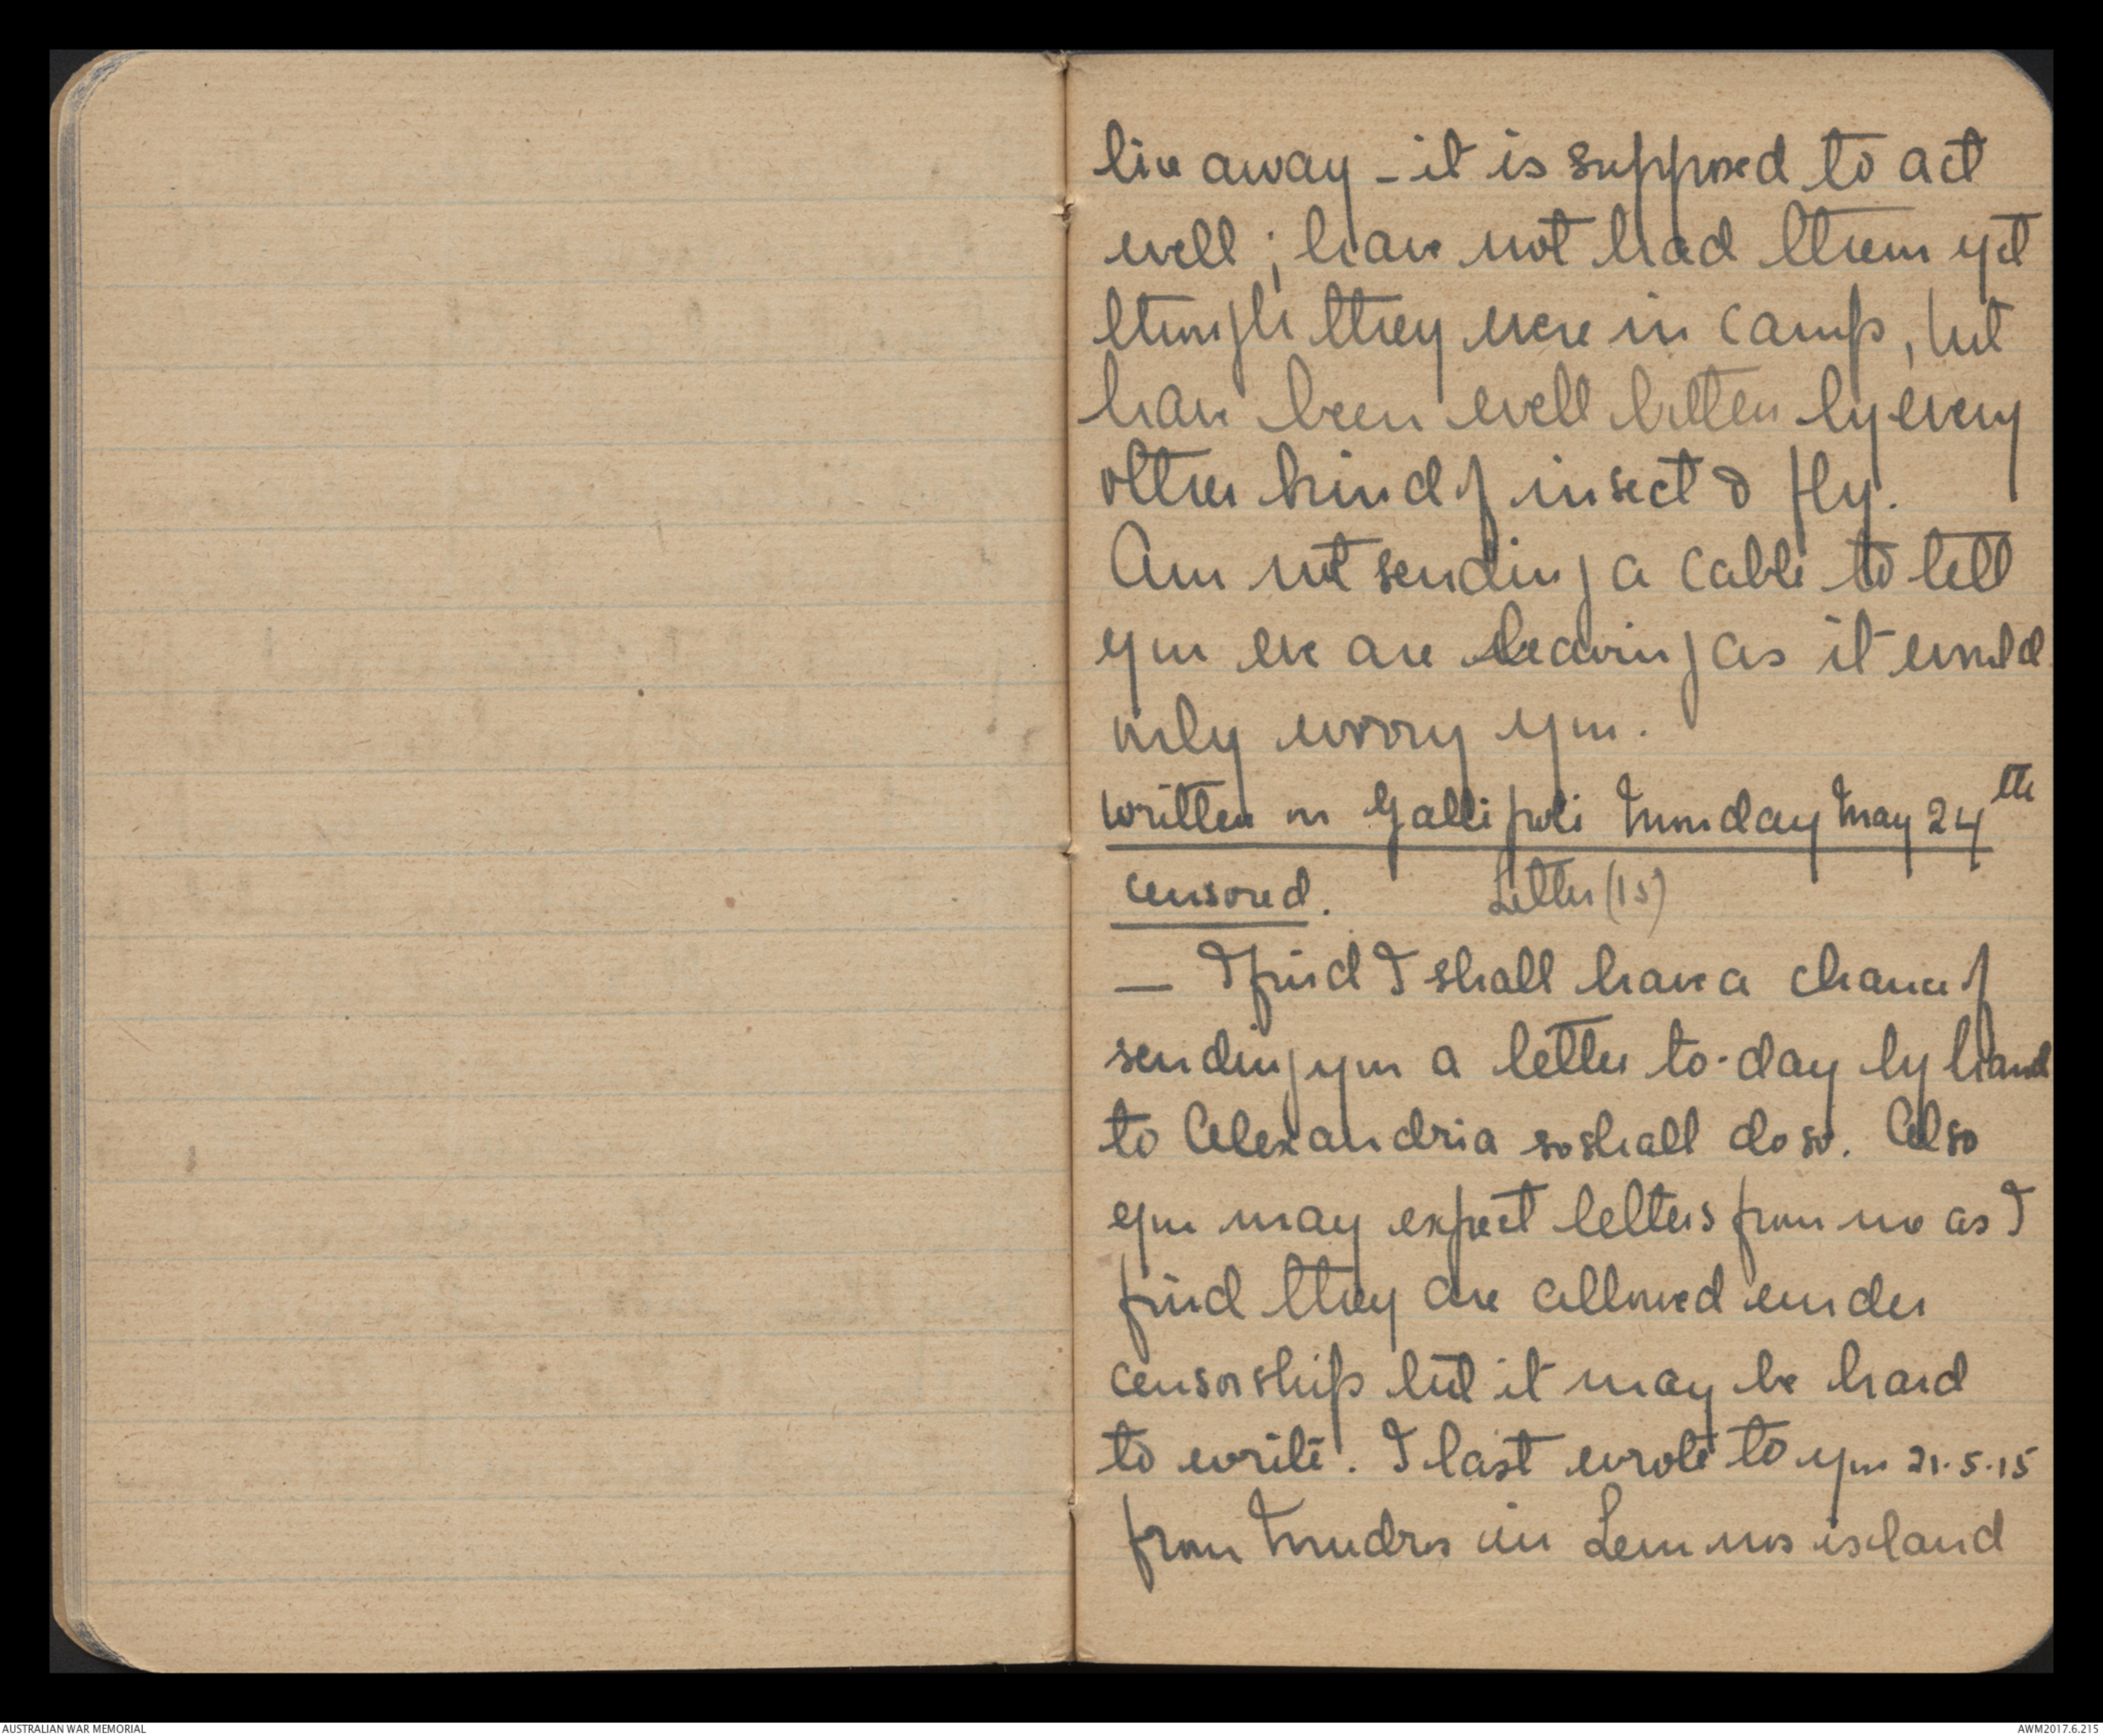 lice away - it is supposed to act
well ; have not had them yet
though they were in camp, but
have been well bitten by every
other kind of insect & fly.
Am not sending a cable to tell
you we are leaving as it would
only worry you.
written on Gallipoli Monday May 24th
censored. Letter (15)
— I find I shall have a chance of
sending you a letter to-day by hand
to Alexandria so shall do so. Also
you may expect letters from me as I
find they are allowed under
censorship but it may be hard
to write. I last wrote to you 21.5.15
from Mudros in Lemnos island
AUSTRALIAN WAR MEMORIAL
AWM2017.6.215